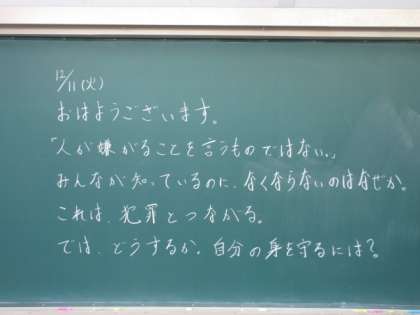 12/11(火)
おはようございます。
「人が嫌がることを言うものではない。」
みんなが知っているのに、なくならないのはなぜか。
これは、犯罪とつながる。
では、どうするか。自分の身を守るには？